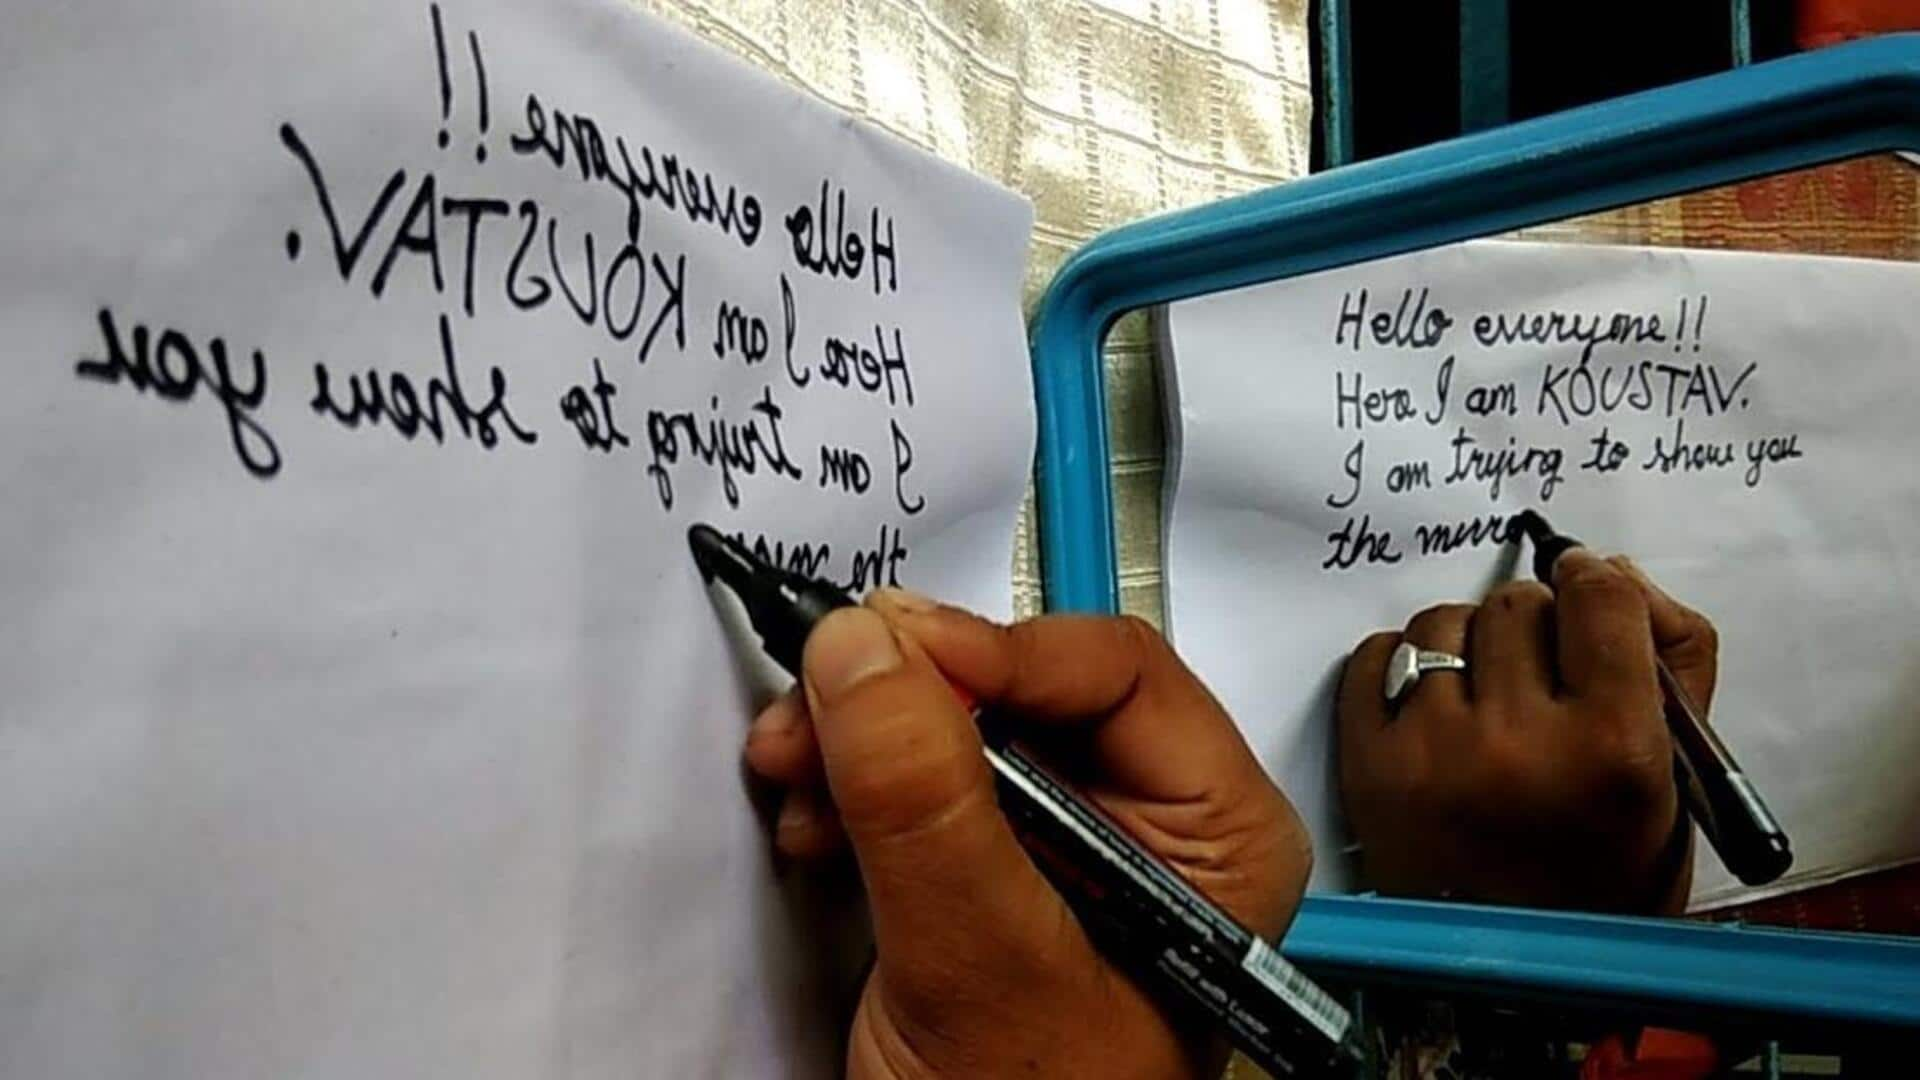 Hello everyone!!
Here I am KOUSTAV.
I am trying to show you
the mirro
Hello everyone!!
Here I am KOUSTAV.
I am trying to show you
the
Refill with Luxor